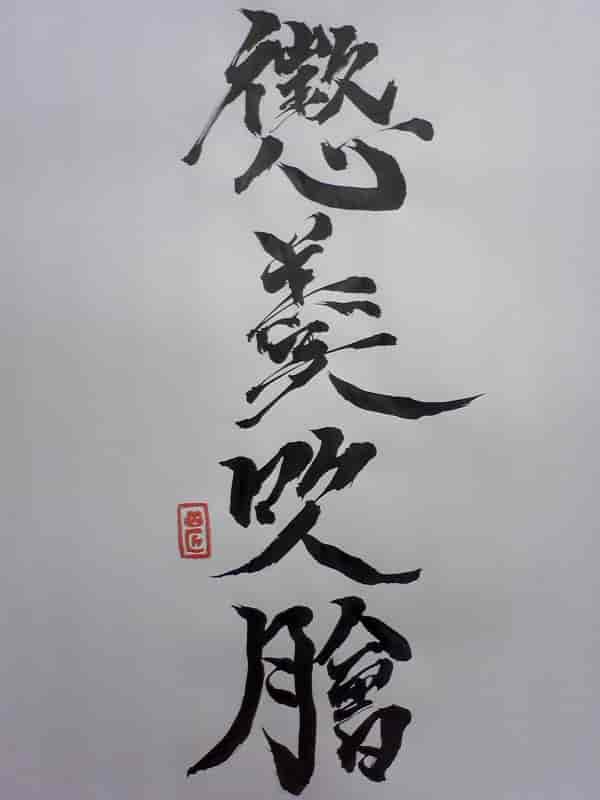 懲羹吹膾